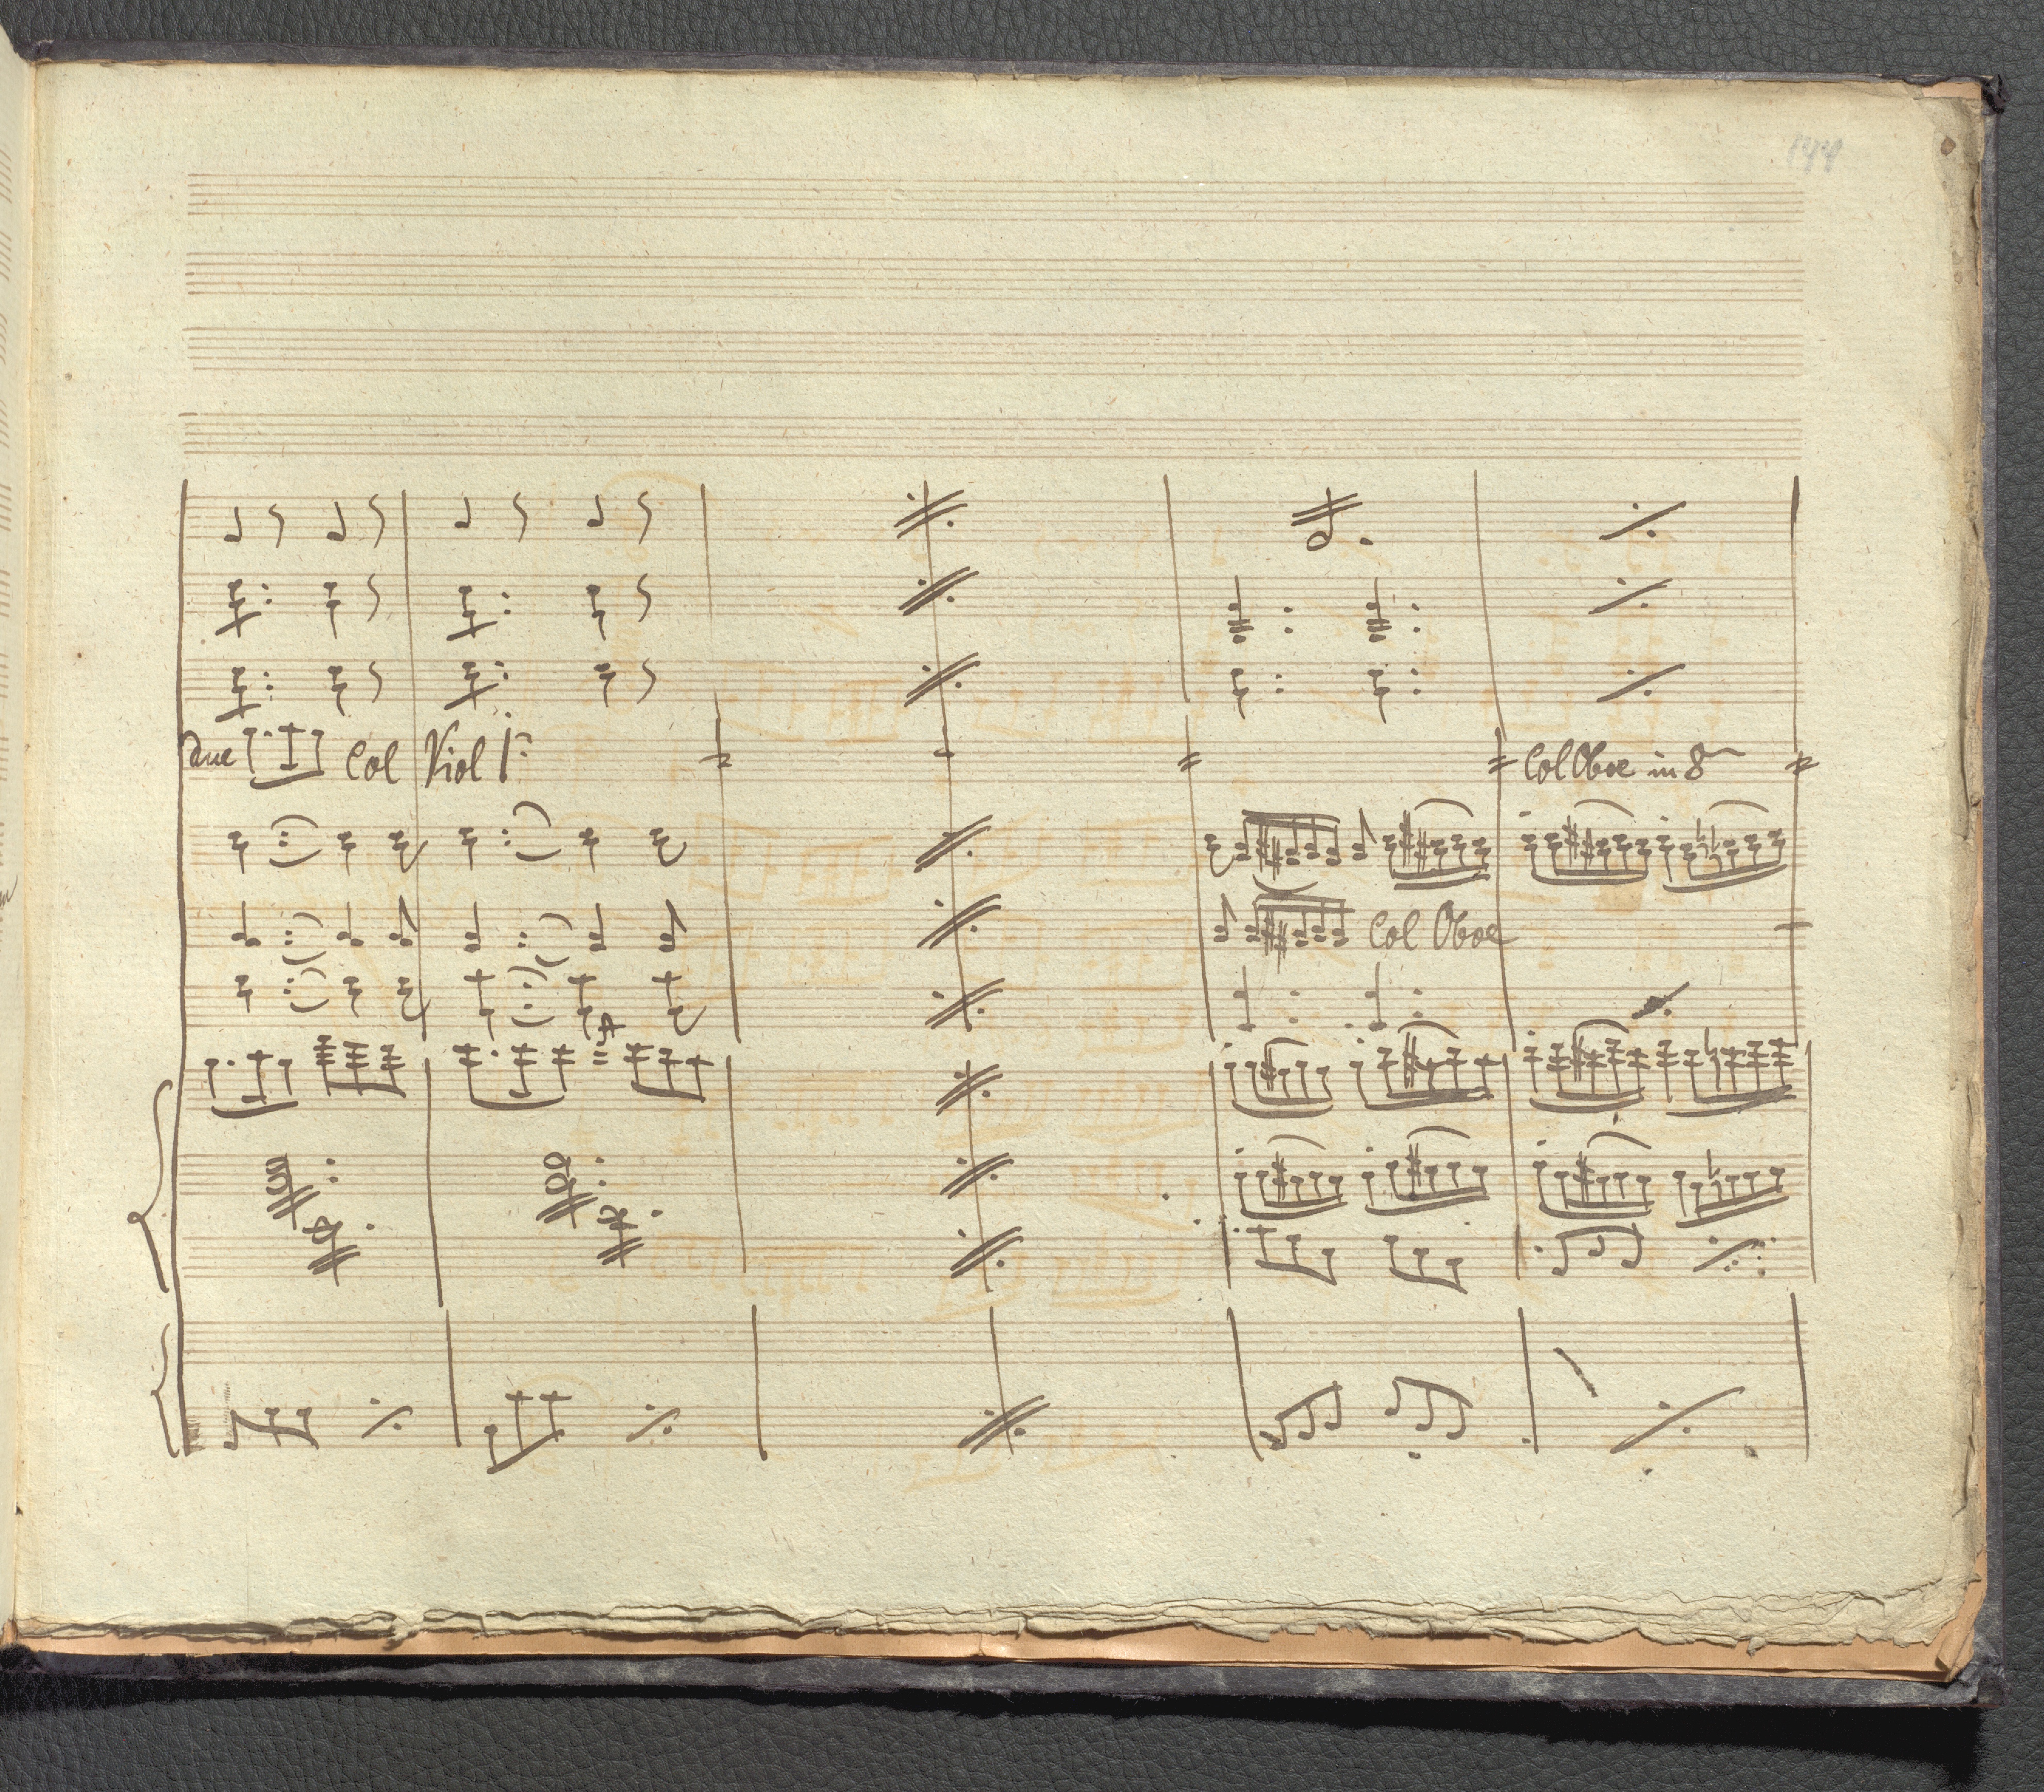 144
due Col Viol 1º
Col Oboe in 8
Col Oboe